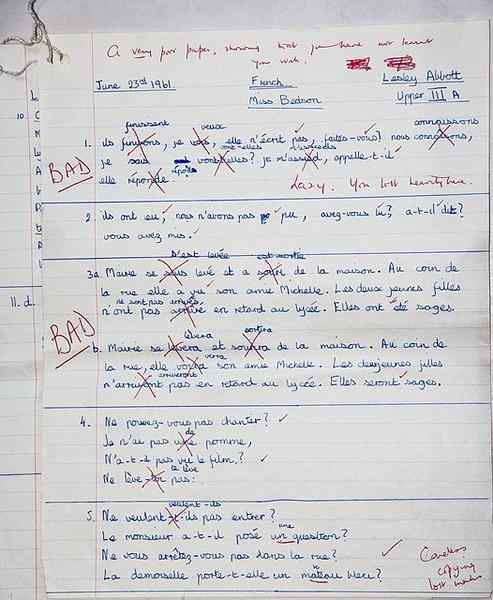 A very poor paper, showing that you have not learnt
your work.
June 23rd 1961 French Lesley Abbott
Miss Bedson Upper III A
finissent veux connaissons
1. ils finissons, je vous, elle n'écrit pes, faites-vous? nous connaîsons,
vont-elles m'assieds
je suis vonselles? je m'assied, appelle-t-il
BAD
répond
elle réponde.
Lazy. You lost heavily here.
2. ils ont eu, nous n'avons pas pu, avez-vous lu? a-t-il dit?
vous avez mis.
s'est levée est sortie
3a. Marie se suis levé et a souri de la maison. Au coin de
la rue elle a vu son amie Michelle. Les deux jeunes filles
ne sont pas arrivées
n'ont pas arrivé en retard au lycée. Elles ont été sages.
BAD
lèvera sortira
b. Marie se livera et soutira de la maison. Au coin de
verra
la rue, elle voira son amie Michelle. Les deux jeunes filles
arriveront
n'arruyont pas en retard au lycée. Elles seront sages.
4. Ne pouvez-vous pas chanter?
de
Je n'ai pas une pomme,
N'a-t-il pas vu le film?
te lève
Ne lève-toi pas.
veulent-ils
5. Ne veulent-t-ils pas entrer?
une
Le monsieur a-t-il posé un question?
Ne vous arrêtez-vous pas dans la rue?
La demoiselle porte-t-elle un mateau bleu?
Careless
copying
lost marks
10.
11. d.